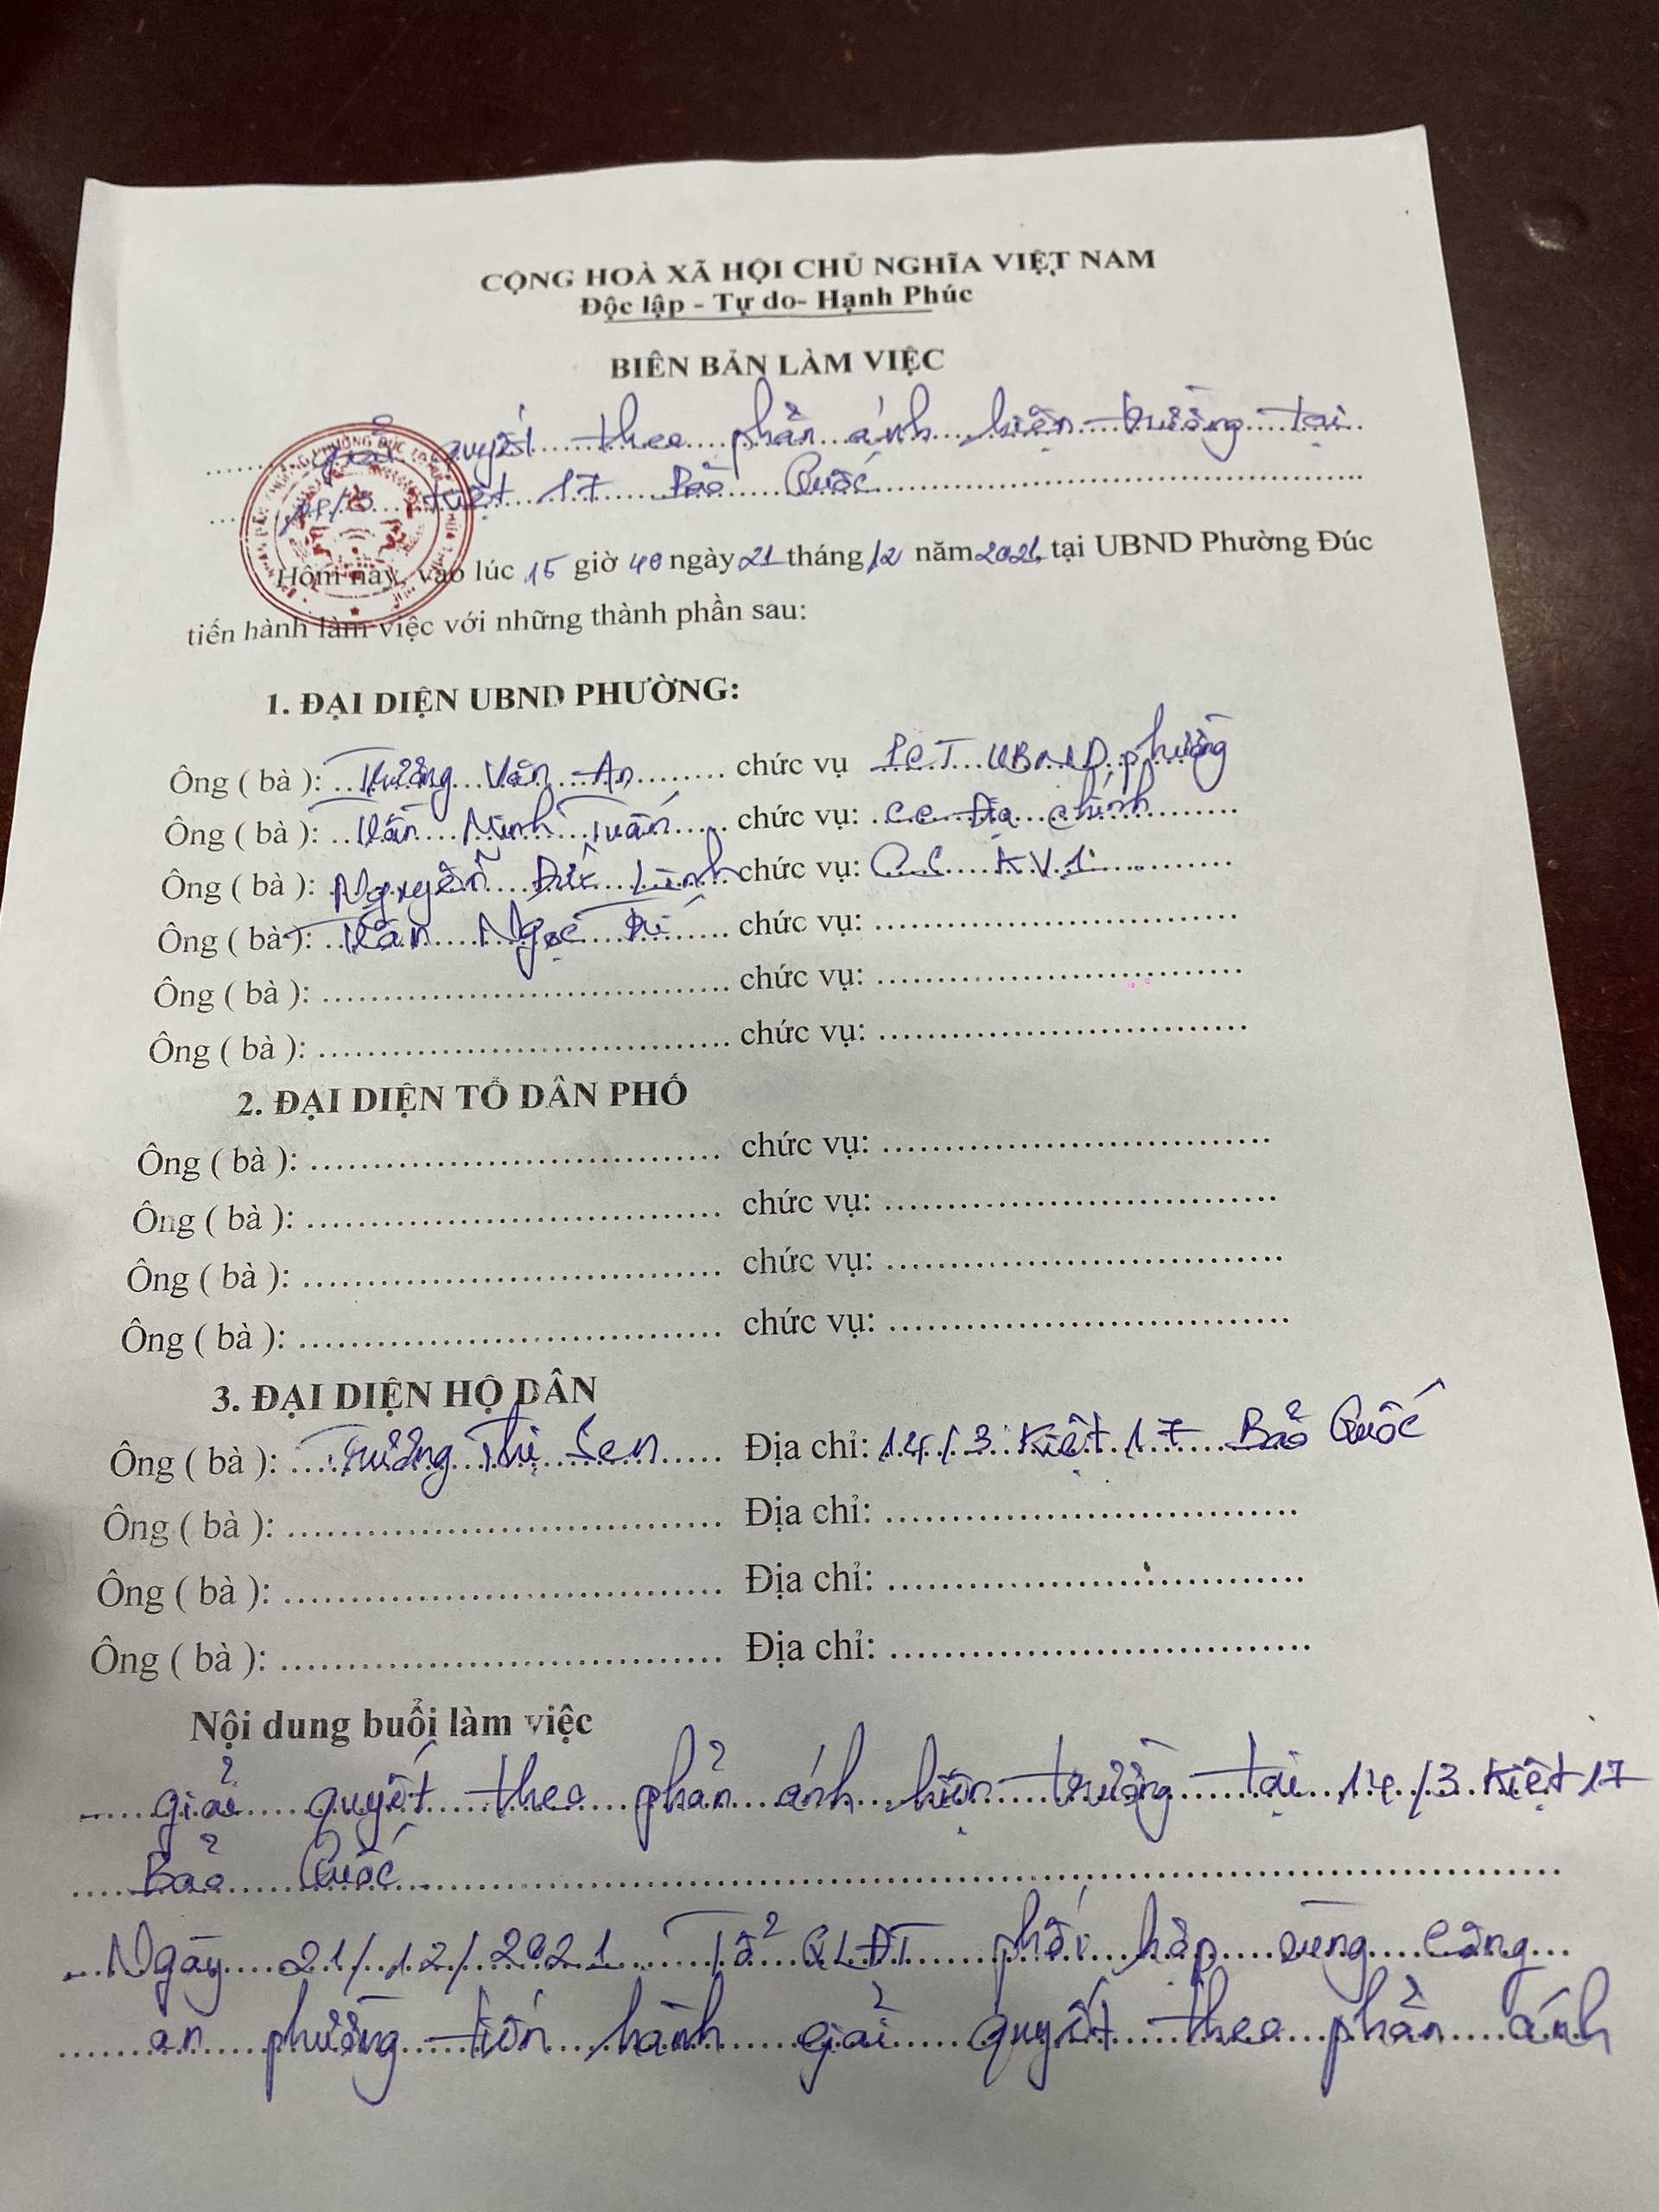 CỘNG HOÀ XÃ HỘI CHỦ NGHĨA VIỆT NAM
Độc lập - Tự do- Hạnh Phúc
BIÊN BẢN LÀM VIỆC
giải quyết theo phản ánh hiện trường tại
14/3 kiệt 17 Bảo Quốc
Hôm nay, vào lúc 15 giờ 40 ngày 21 tháng 12 năm 2021, tại UBND Phường Đúc
tiến hành làm việc với những thành phần sau:
1. ĐẠI DIỆN UBND PHƯỜNG:
Ông ( bà ): Trương Văn An chức vụ PCT UBND phường
Ông ( bà ): Trần Minh Tuấn chức vụ: CC Địa chính
Ông ( bà ): Nguyễn Đức Linh chức vụ: C.S KV1
Ông ( bà ): Trần Ngọc Trí chức vụ:
Ông ( bà ): chức vụ:
Ông ( bà ): chức vụ:
2. ĐẠI DIỆN TỔ DÂN PHỐ
Ông ( bà ): chức vụ:
Ông ( bà ): chức vụ:
Ông ( bà ): chức vụ:
Ông ( bà ): chức vụ:
3. ĐẠI DIỆN HỘ DÂN
Ông ( bà ): Trương Thị Sen Địa chỉ: 14/3 Kiệt 17 Bảo Quốc
Ông ( bà ): Địa chỉ:
Ông ( bà ): Địa chỉ:
Ông ( bà ): Địa chỉ:
Nội dung buổi làm việc
- giải quyết theo phản ánh hiện trường tại 14/3 Kiệt 17
Bảo Quốc
- Ngày 21/12/2021 Tổ QLĐT phối hợp cùng công
an phường tiến hành giải quyết theo phản ánh